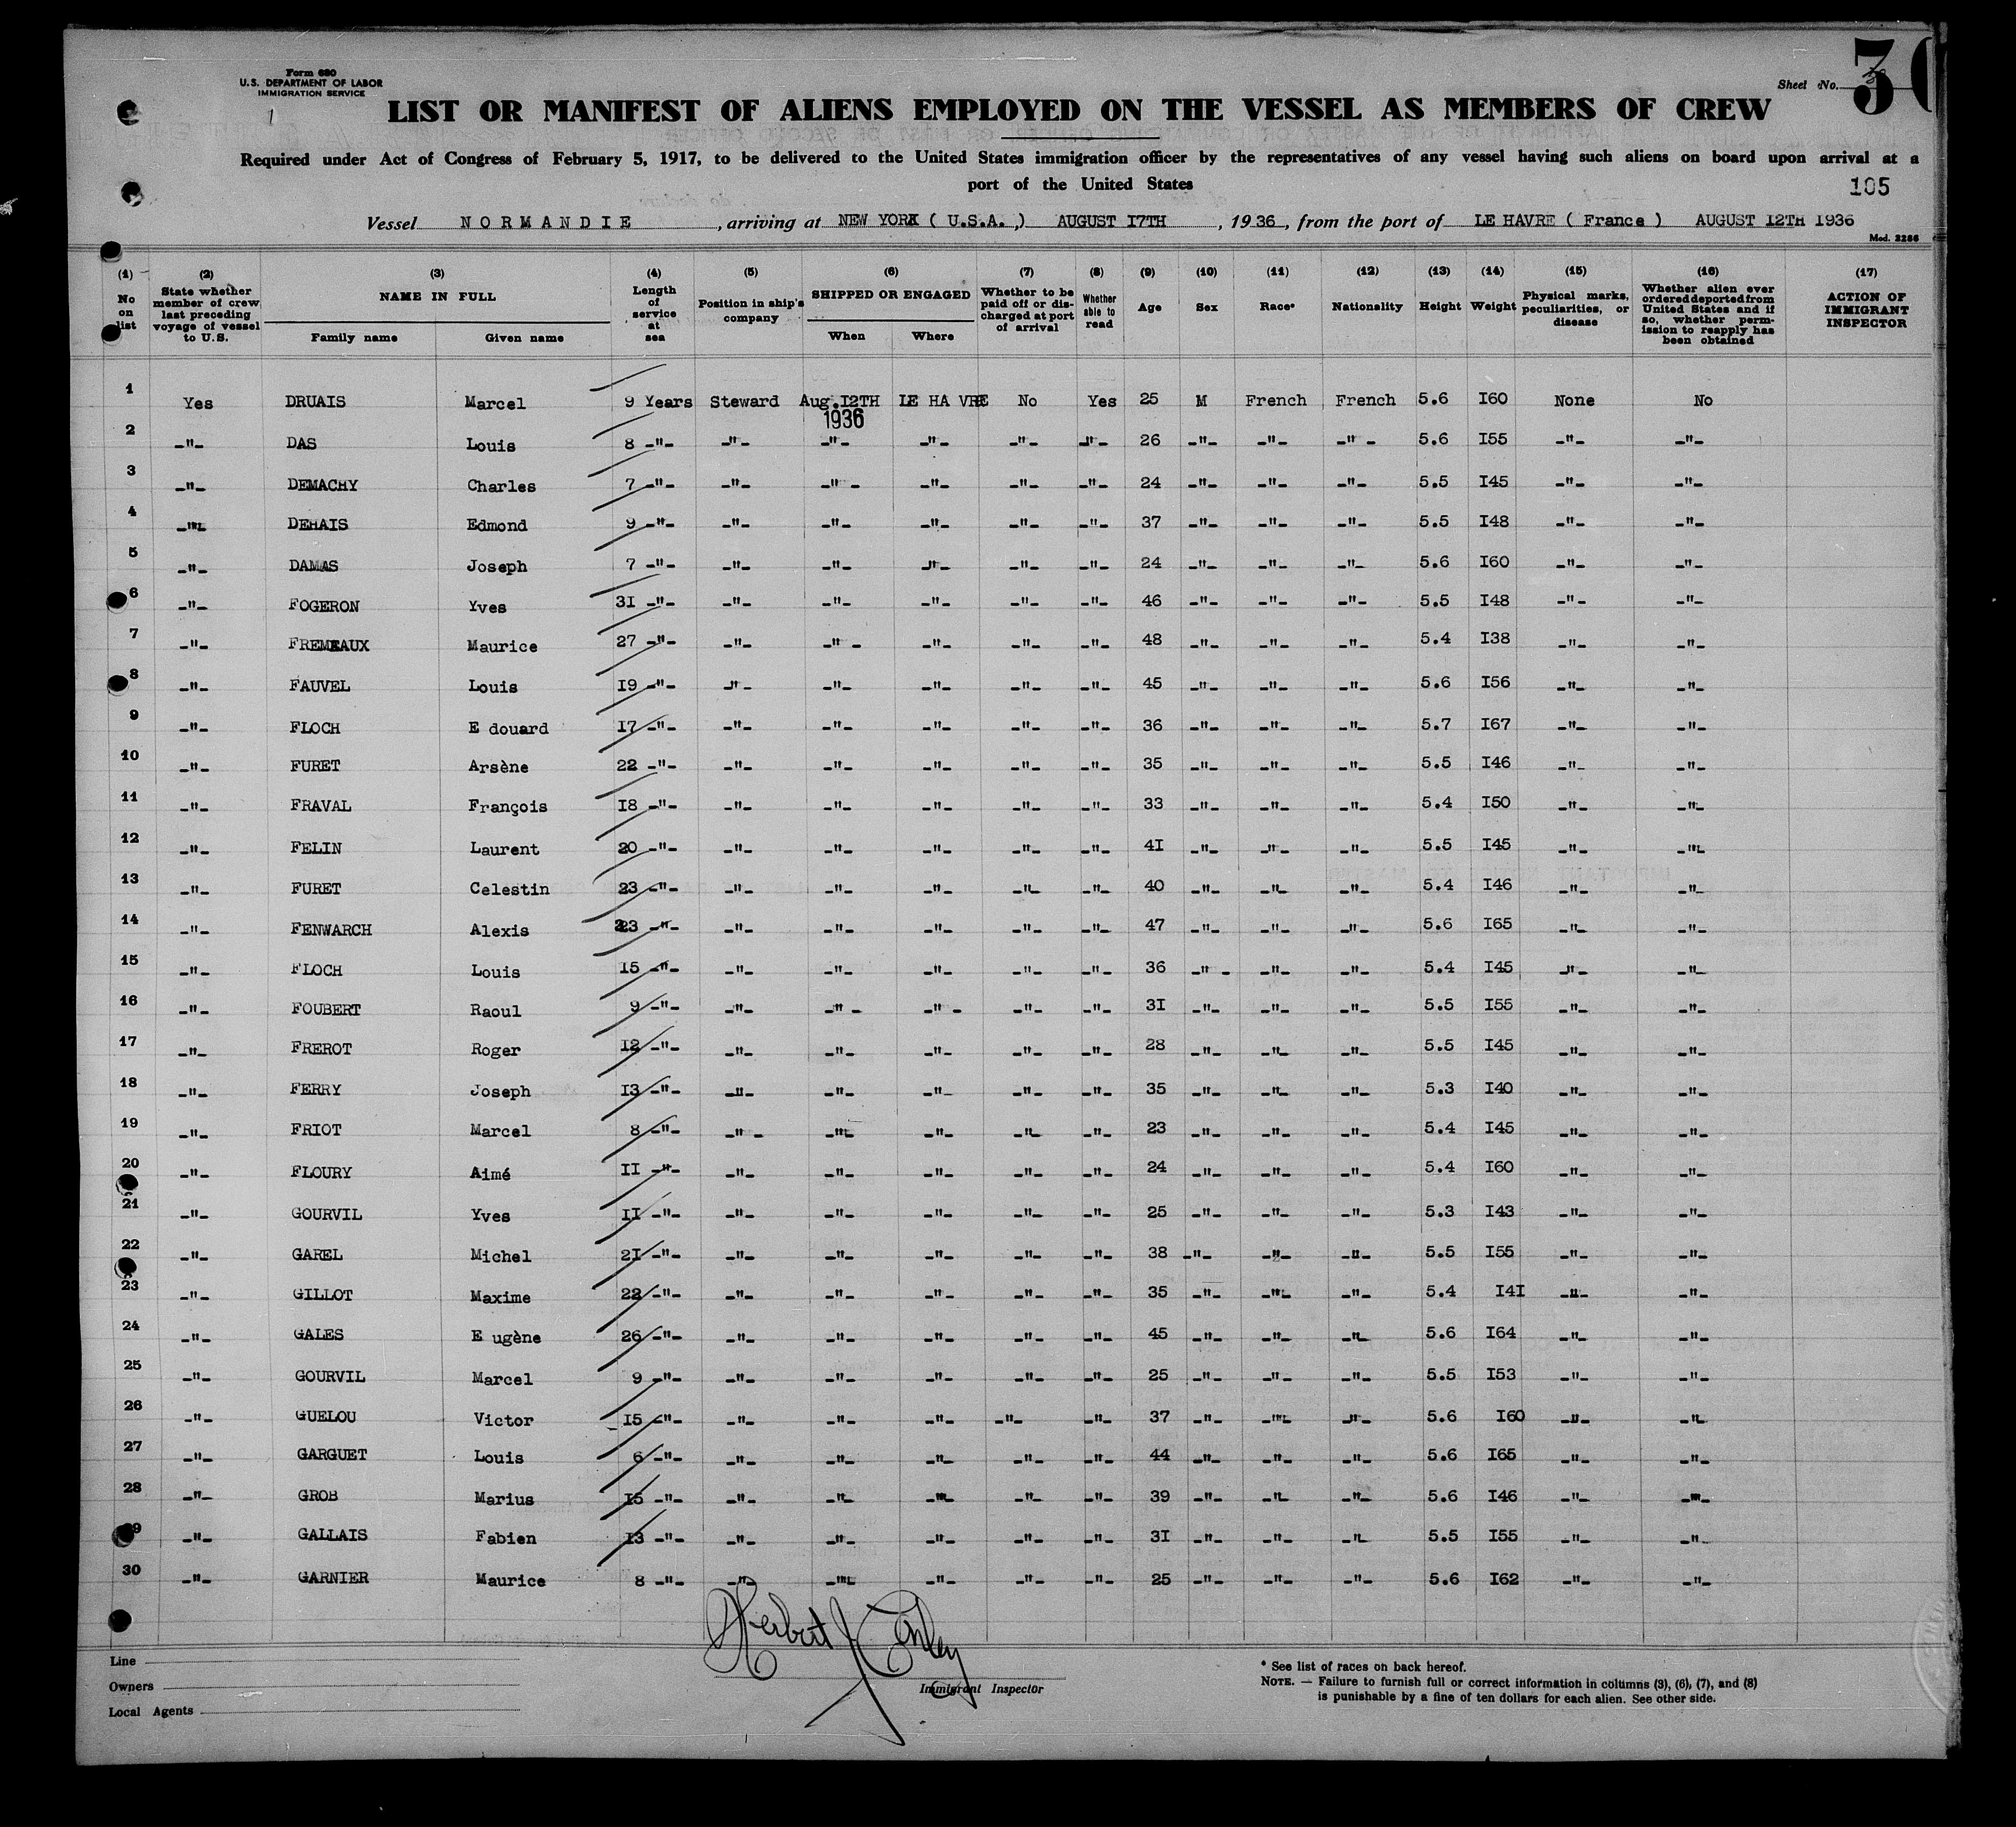 Form 680
U.S. DEPARTMENT OF LABOR
IMMIGRATION SERVICE
Sheet No. 30
LIST OR MANIFEST OF ALIENS EMPLOYED ON THE VESSEL AS MEMBERS OF CREW
Required under Act of Congress of February 5, 1917, to be delivered to the United States immigration officer by the representatives of any vessel having such aliens on board upon arrival at a
port of the United States
105
Vessel NORMANDIE, arriving at NEW YORK ( U.S.A. ,) AUGUST I7TH, 1936, from the port of LE HAVRE ( France ) AUGUST I2TH I936
Mod. 2286
(1) No on list (2) State whether member of crew last preceding voyage of vessel to U.S. (3) NAME IN FULL Family name Given name (4) Length of service at sea (5) Position in ship's company (6) SHIPPED OR ENGAGED When Where (7) Whether to be paid off or discharged at port of arrival (8) Whether able to read (9) Age (10) Sex (11) Race* (12) Nationality (13) Height (14) Weight (15) Physical marks, peculiarities, or disease (16) Whether alien ever ordered deported from United States and if so, whether permission to reapply has been obtained (17) ACTION OF IMMIGRANT INSPECTOR
1 Yes DRUAIS Marcel 9 Years Steward Aug.I2TH 1936 LE HA VRE No Yes 25 M French French 5.6 I60 None No
2 -"- DAS Louis 8 -"- -"- -"- -"- -"- -"- 26 -"- -"- -"- 5.6 I55 -"- -"-
3 -"- DEMACHY Charles 7 -"- -"- -"- -"- -"- -"- 24 -"- -"- -"- 5.5 I45 -"- -"-
4 -"- DEHAIS Edmond 9 -"- -"- -"- -"- -"- -"- 37 -"- -"- -"- 5.5 I48 -"- -"-
5 -"- DAMAS Joseph 7 -"- -"- -"- -"- -"- -"- 24 -"- -"- -"- 5.6 I60 -"- -"-
6 -"- FOGERON Yves 3I -"- -"- -"- -"- -"- -"- 46 -"- -"- -"- 5.5 I48 -"- -"-
7 -"- FREMEAUX Maurice 27 -"- -"- -"- -"- -"- -"- 48 -"- -"- -"- 5.4 I38 -"- -"-
8 -"- FAUVEL Louis I9 -"- -"- -"- -"- -"- -"- 45 -"- -"- -"- 5.6 I56 -"- -"-
9 -"- FLOCH E douard I7 -"- -"- -"- -"- -"- -"- 36 -"- -"- -"- 5.7 I67 -"- -"-
10 -"- FURET Arsène 22 -"- -"- -"- -"- -"- -"- 35 -"- -"- -"- 5.5 I46 -"- -"-
11 -"- FRAVAL François I8 -"- -"- -"- -"- -"- -"- 33 -"- -"- -"- 5.4 I50 -"- -"-
12 -"- FELIN Laurent 20 -"- -"- -"- -"- -"- -"- 4I -"- -"- -"- 5.5 I45 -"- -"-
13 -"- FURET Celestin 23 -"- -"- -"- -"- -"- -"- 40 -"- -"- -"- 5.4 I46 -"- -"-
14 -"- FENWARCH Alexis 23 -"- -"- -"- -"- -"- -"- 47 -"- -"- -"- 5.6 I65 -"- -"-
15 -"- FLOCH Louis I5 -"- -"- -"- -"- -"- -"- 36 -"- -"- -"- 5.4 I45 -"- -"-
16 -"- FOUBERT Raoul 9 -"- -"- -"- -"- -"- -"- 3I -"- -"- -"- 5.5 I55 -"- -"-
17 -"- FREROT Roger I2 -"- -"- -"- -"- -"- -"- 28 -"- -"- -"- 5.5 I45 -"- -"-
18 -"- FERRY Joseph I3 -"- -"- -"- -"- -"- -"- 35 -"- -"- -"- 5.3 I40 -"- -"-
19 -"- FRIOT Marcel 8 -"- -"- -"- -"- -"- -"- 23 -"- -"- -"- 5.4 I45 -"- -"-
20 -"- FLOURY Aimé II -"- -"- -"- -"- -"- -"- 24 -"- -"- -"- 5.4 I60 -"- -"-
21 -"- GOURVIL Yves II -"- -"- -"- -"- -"- -"- 25 -"- -"- -"- 5.3 I43 -"- -"-
22 -"- GAREL Michel 2I -"- -"- -"- -"- -"- -"- 38 -"- -"- -"- 5.5 I55 -"- -"-
23 -"- GILLOT Maxime 22 -"- -"- -"- -"- -"- -"- 35 -"- -"- -"- 5.4 I4I -"- -"-
24 -"- GALES E ugène 26 -"- -"- -"- -"- -"- -"- 45 -"- -"- -"- 5.6 I64 -"- -"-
25 -"- GOURVIL Marcel 9 -"- -"- -"- -"- -"- -"- 25 -"- -"- -"- 5.5 I53 -"- -"-
26 -"- GUELOU Victor I5 -"- -"- -"- -"- -"- -"- 37 -"- -"- -"- 5.6 I60 -"- -"-
27 -"- GARGUET Louis 6 -"- -"- -"- -"- -"- -"- 44 -"- -"- -"- 5.6 I65 -"- -"-
28 -"- GROB Marius I5 -"- -"- -"- -"- -"- -"- 39 -"- -"- -"- 5.6 I46 -"- -"-
29 -"- GALLAIS Fabien I3 -"- -"- -"- -"- -"- -"- 3I -"- -"- -"- 5.5 I55 -"- -"-
30 -"- GARNIER Maurice 8 -"- -"- -"- -"- -"- -"- 25 -"- -"- -"- 5.6 I62 -"- -"-
Herbert J Conley
Immigrant Inspector
Line
Owners
Local Agents
* See list of races on back hereof.
NOTE. — Failure to furnish full or correct information in columns (3), (6), (7), and (8)
is punishable by a fine of ten dollars for each alien. See other side.